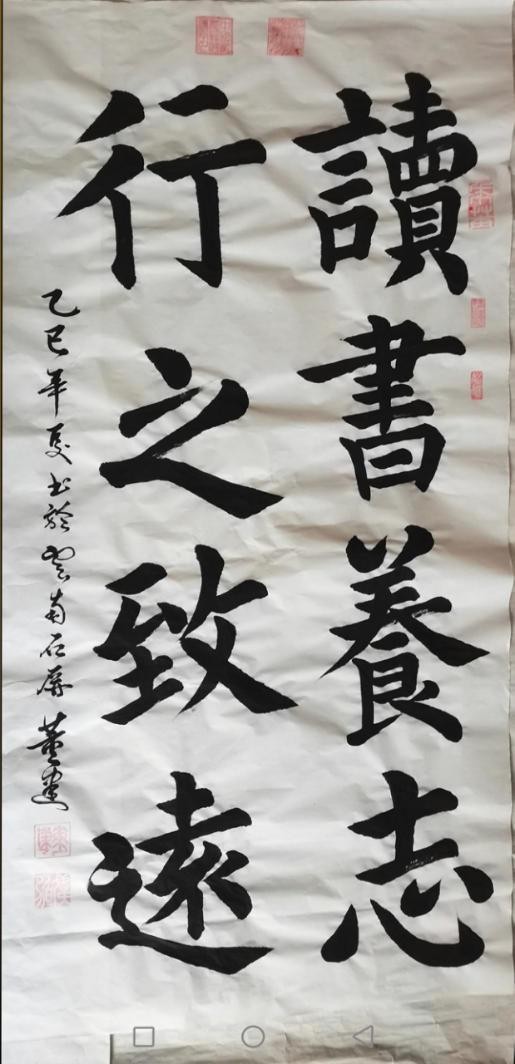 讀書養志
行之致遠
乙巳年夏書於雲南石屏 董建